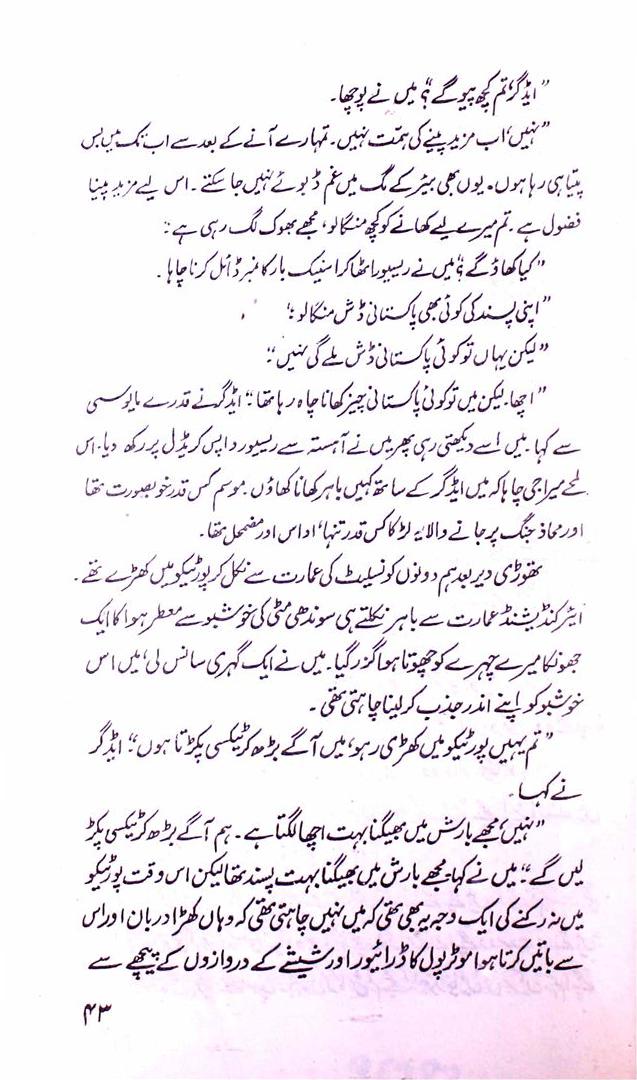 "ایڈگر، تم کچھ پیو گے؟" میں نے پوچھا۔
"نہیں، اب مزید پینے کی ہمت نہیں۔ تمہارے آنے کے بعد سے اب تک میں بس
پیتا ہی رہا ہوں۔ یوں بھی بیئر کے مگ میں غم ڈبوئے نہیں جا سکتے۔ اس لیے مزید پینا
فضول ہے۔ تم میرے لیے کھانے کو کچھ منگا لو، مجھے بھوک لگ رہی ہے۔"
"کیا کھاؤ گے؟" میں نے ریسیور اٹھا کر اسنیک بار کا نمبر ڈائل کرنا چاہا۔
"اپنی پسند کی کوئی بھی پاکستانی ڈش منگا لو۔"
"لیکن یہاں تو کوئی پاکستانی ڈش ملے گی نہیں۔"
"اچھا۔ لیکن میں تو کوئی پاکستانی چیز کھانا چاہ رہا تھا۔" ایڈگر نے قدرے مایوسی
سے کہا۔ میں اسے دیکھتی رہی پھر میں نے آہستہ سے ریسیور واپس کریڈل پر رکھ دیا۔ اس
لمحے میرا جی چاہا کہ میں ایڈگر کے ساتھ کہیں باہر کھانا کھاؤں۔ موسم کس قدر خوبصورت تھا
اور محاذ جنگ پر جانے والا یہ لڑکا کس قدر تنہا، اداس اور مضمحل تھا۔
تھوڑی دیر بعد ہم دونوں کونسلیٹ کی عمارت سے نکل کر پورٹیکو میں کھڑے تھے۔
ایئر کنڈیشنڈ عمارت سے باہر نکلتے ہی سوندھی مٹی کی خوشبو سے معطر ہوا کا ایک
جھونکا میرے چہرے کو چھوتا ہوا گزر گیا۔ میں نے ایک گہری سانس لی، میں اس
خوشبو کو اپنے اندر جذب کر لینا چاہتی تھی۔
"تم یہیں پورٹیکو میں کھڑی رہو، میں آگے بڑھ کر ٹیکسی پکڑتا ہوں۔" ایڈگر
نے کہا۔
"نہیں، مجھے بارش میں بھیگنا بہت اچھا لگتا ہے۔ ہم آگے بڑھ کر ٹیکسی پکڑ
لیں گے۔" میں نے کہا۔ مجھے بارش میں بھیگنا بہت پسند تھا لیکن اس وقت پورٹیکو
میں نہ رکنے کی ایک وجہ یہ بھی تھی کہ میں نہیں چاہتی تھی کہ وہاں کھڑا دربان اور اس
سے باتیں کرتا ہوا موٹر پول کا ڈرائیور اور شیشے کے دروازوں کے پیچھے سے
۴۳